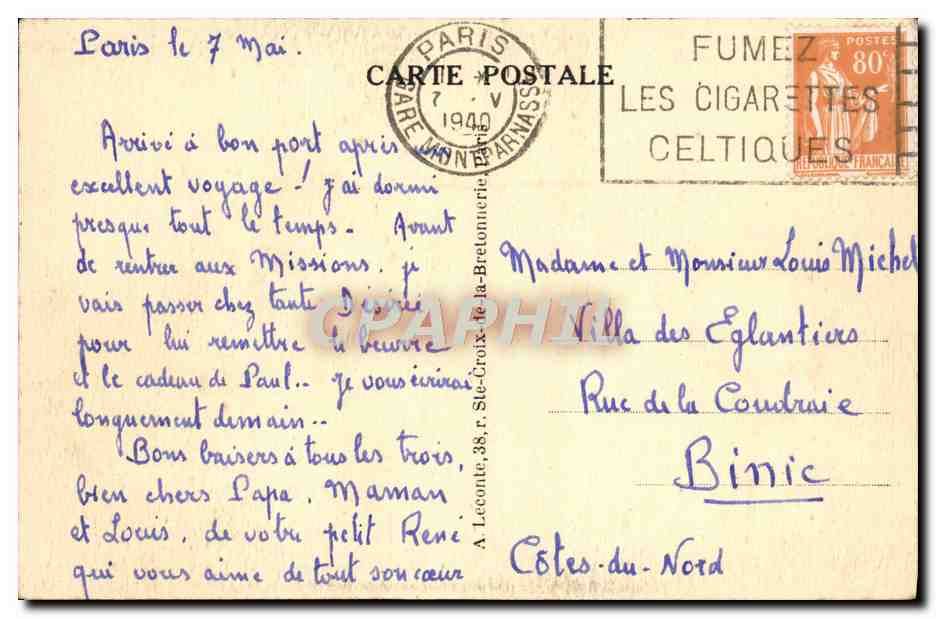 Paris le 7 Mai.
CARTE POSTALE
PARIS
7 . V
1940
GARE MONTPARNASSE
FUMEZ
LES CIGARETTES
CELTIQUES
POSTES
80c
RÉPUBLIQUE FRANÇAISE
Arrivé à bon port après
excellent voyage ! J'ai dormi
presque tout le temps. Avant
de rentrer aux Missions, je
vais passer chez tante Désirée
pour lui remettre le beurre
et le cadeau de Paul.. Je vous écrirai
longuement demain..
Bons baisers à tous les trois,
bien chers Papa, Maman
et Louis, de votre petit René
qui vous aime de tout son cœur
A. Leconte, 38, r. Ste-Croix-de-la-Bretonnerie, Paris
Madame et Monsieur Louis Michel
Villa des Eglantiers
Rue de la Coudraie
Binic
Côtes-du-Nord
CPAPHIL